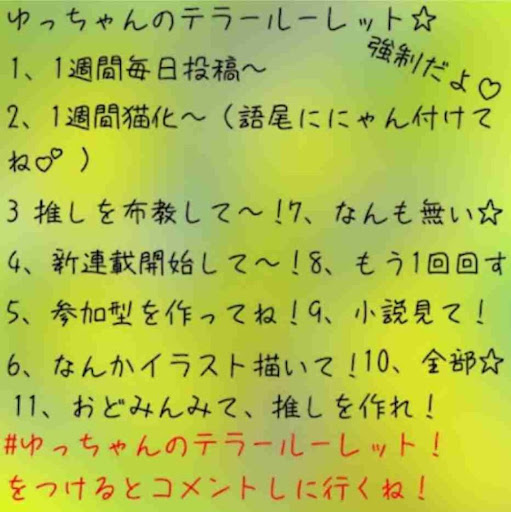 ゆっちゃんのテラールーレット☆
強制だよ♡
1、1週間毎日投稿〜
2、1週間猫化〜（語尾ににゃん付けて
ね♡♡）
3 推しを布教して〜！7、なんも無い☆
4、新連載開始して〜！8、もう1回回す
5、参加型を作ってね！9、小説見て！
6、なんかイラスト描いて！10、全部☆
11、おどみんみて、推しを作れ！
#ゆっちゃんのテラールーレット！
をつけるとコメントしに行くね！